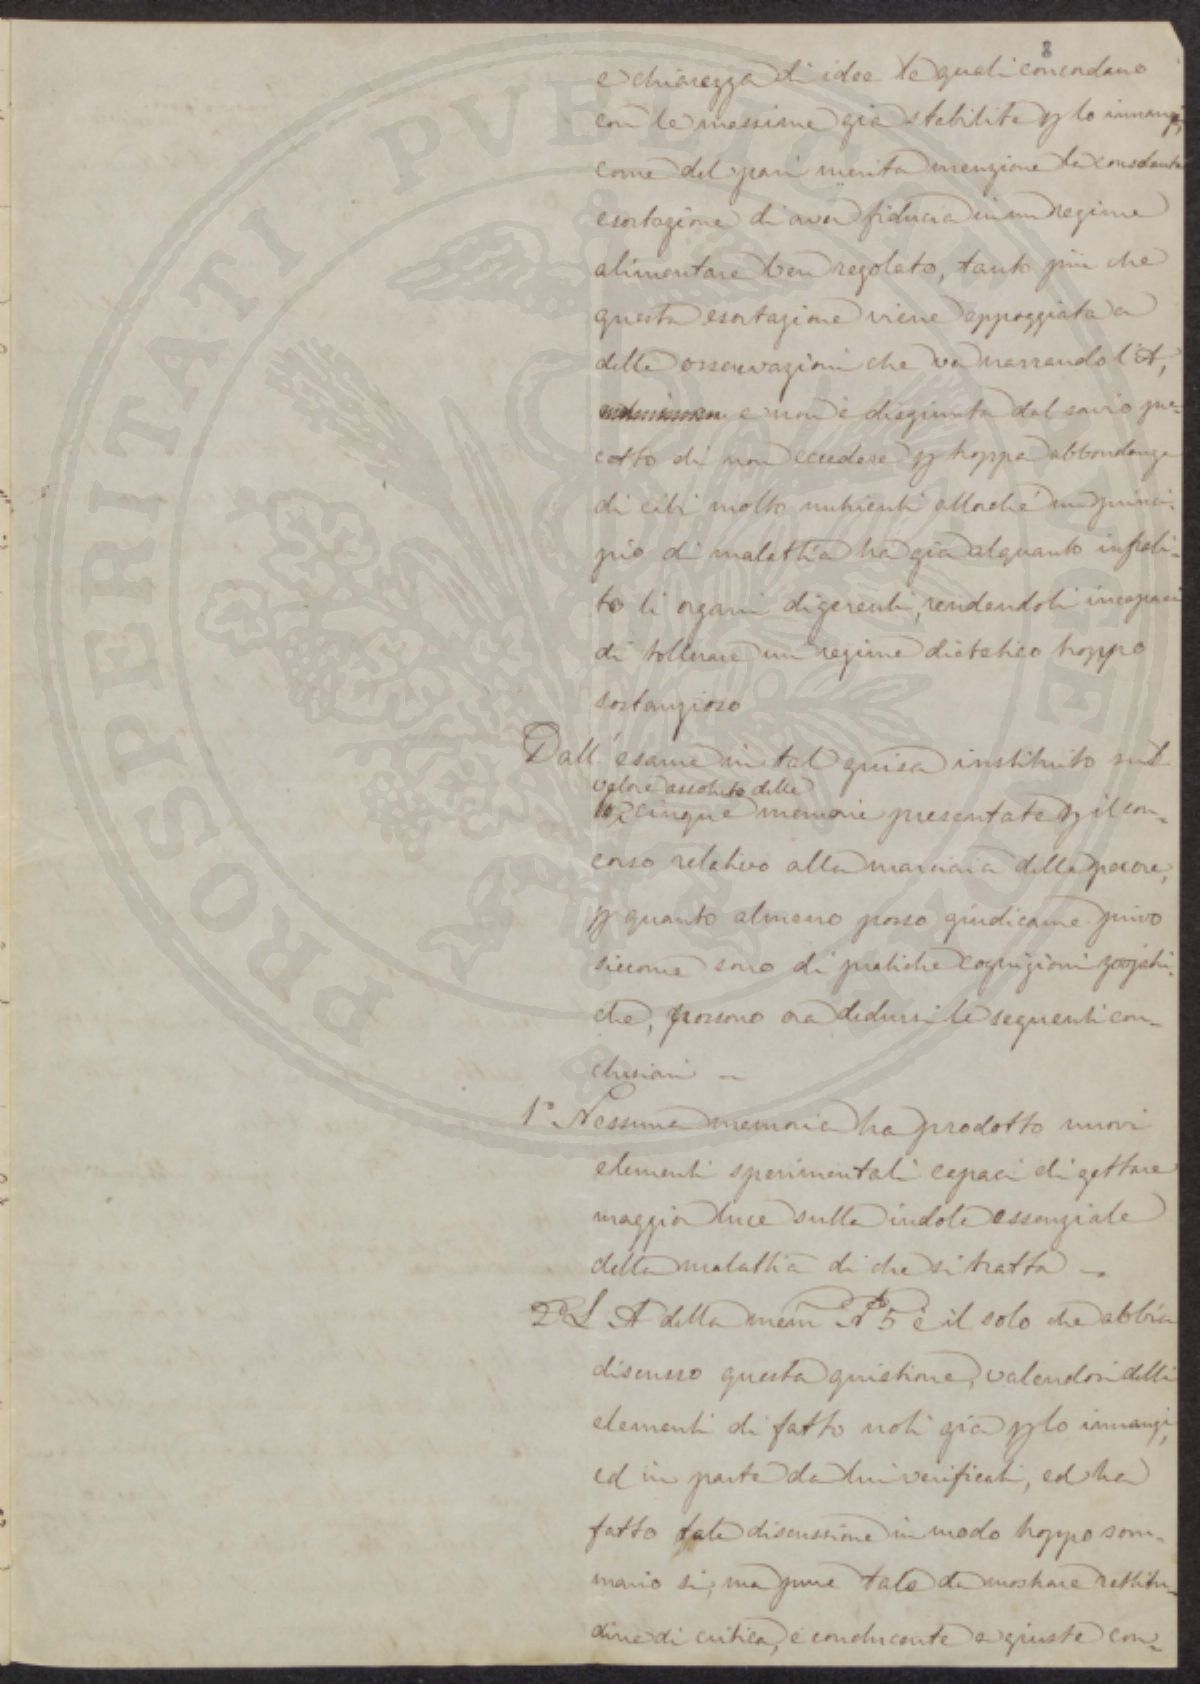 8
e chiarezza di idee le quali concordano
con le massime già stabilite p lo innanzi,
come del pari merita menzione la constante
esortazione di aver fiducia in un regime
alimentare ben regolato, tanto più che
questa esortazione viene appoggiata a
delle osservazioni che va narrando l'A,
e non è disgiunta dal savio pre-
cetto di non eccedere p troppa abbondanza
di cibi molto nutrienti allorchè un princi-
pio di malattia ha già alquanto infieli-
to li organi digerenti, rendendoli incapaci
di tollerare un regime dietetico troppo
sostanzioso
Dall'esame in tal guisa instituito sul
valore assoluto delle
cinque memorie presentate p il con-
corso relativo alla marciaia delle pecore,
p quanto almeno posso giudicarne privo
siccome sono di pratiche cognizioni zoojatri-
che, possono ora dedursi le seguenti con-
clusioni –
1° Nessuna memoria ha prodotto nuovi
elementi sperimentali capaci di gettare
maggior luce sulla indole essenziale
della malattia di che si tratta –
2° L'A della mem N° 5 è il solo che abbia
discusso questa quistione, valendosi delli
elementi di fatto noti già p lo innanzi,
ed in parte da lui verificati, ed ha
fatto tale discussione in modo troppo som-
mario si, ma pure tale da mostrare rettitu-
dine di critica, e conducente a giuste con-
PROSPERITATI PVBLICAE AVGENDAE